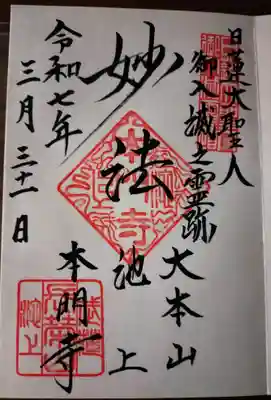 日蓮大聖人
御入滅之霊跡
大本山
妙法
池上
本門寺
令和七年
三月三十一日